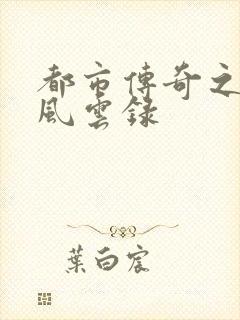 都市傳奇之
風雲錄
葉白宸